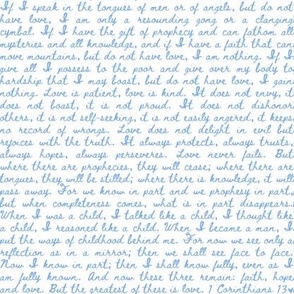 If I speak in the tongues of men or of angels, but do not
have love, I am only a resounding gong or a clanging
cymbal. If I have the gift of prophecy and can fathom all
mysteries and all knowledge, and if I have a faith that can
move mountains, but do not have love, I am nothing. If I
give all I possess to the poor and give over my body to
hardship that I may boast, but do not have love, I gain
nothing. Love is patient, love is kind. It does not envy, it
does not boast, it is not proud. It does not dishonor
others, it is not self-seeking, it is not easily angered, it keeps
no record of wrongs. Love does not delight in evil but
rejoices with the truth. It always protects, always trusts,
always hopes, always perseveres. Love never fails. But
where there are prophecies, they will cease; where there are
tongues, they will be stilled; where there is knowledge, it will
pass away. For we know in part and we prophesy in part,
but when completeness comes, what is in part disappears.
When I was a child, I talked like a child, I thought like
a child, I reasoned like a child. When I became a man, I
put the ways of childhood behind me. For now we see only a
reflection as in a mirror; then we shall see face to face.
Now I know in part; then I shall know fully, even as I
am fully known. And now these three remain: faith, hope
and love. But the greatest of these is love. 1 Corinthians 13